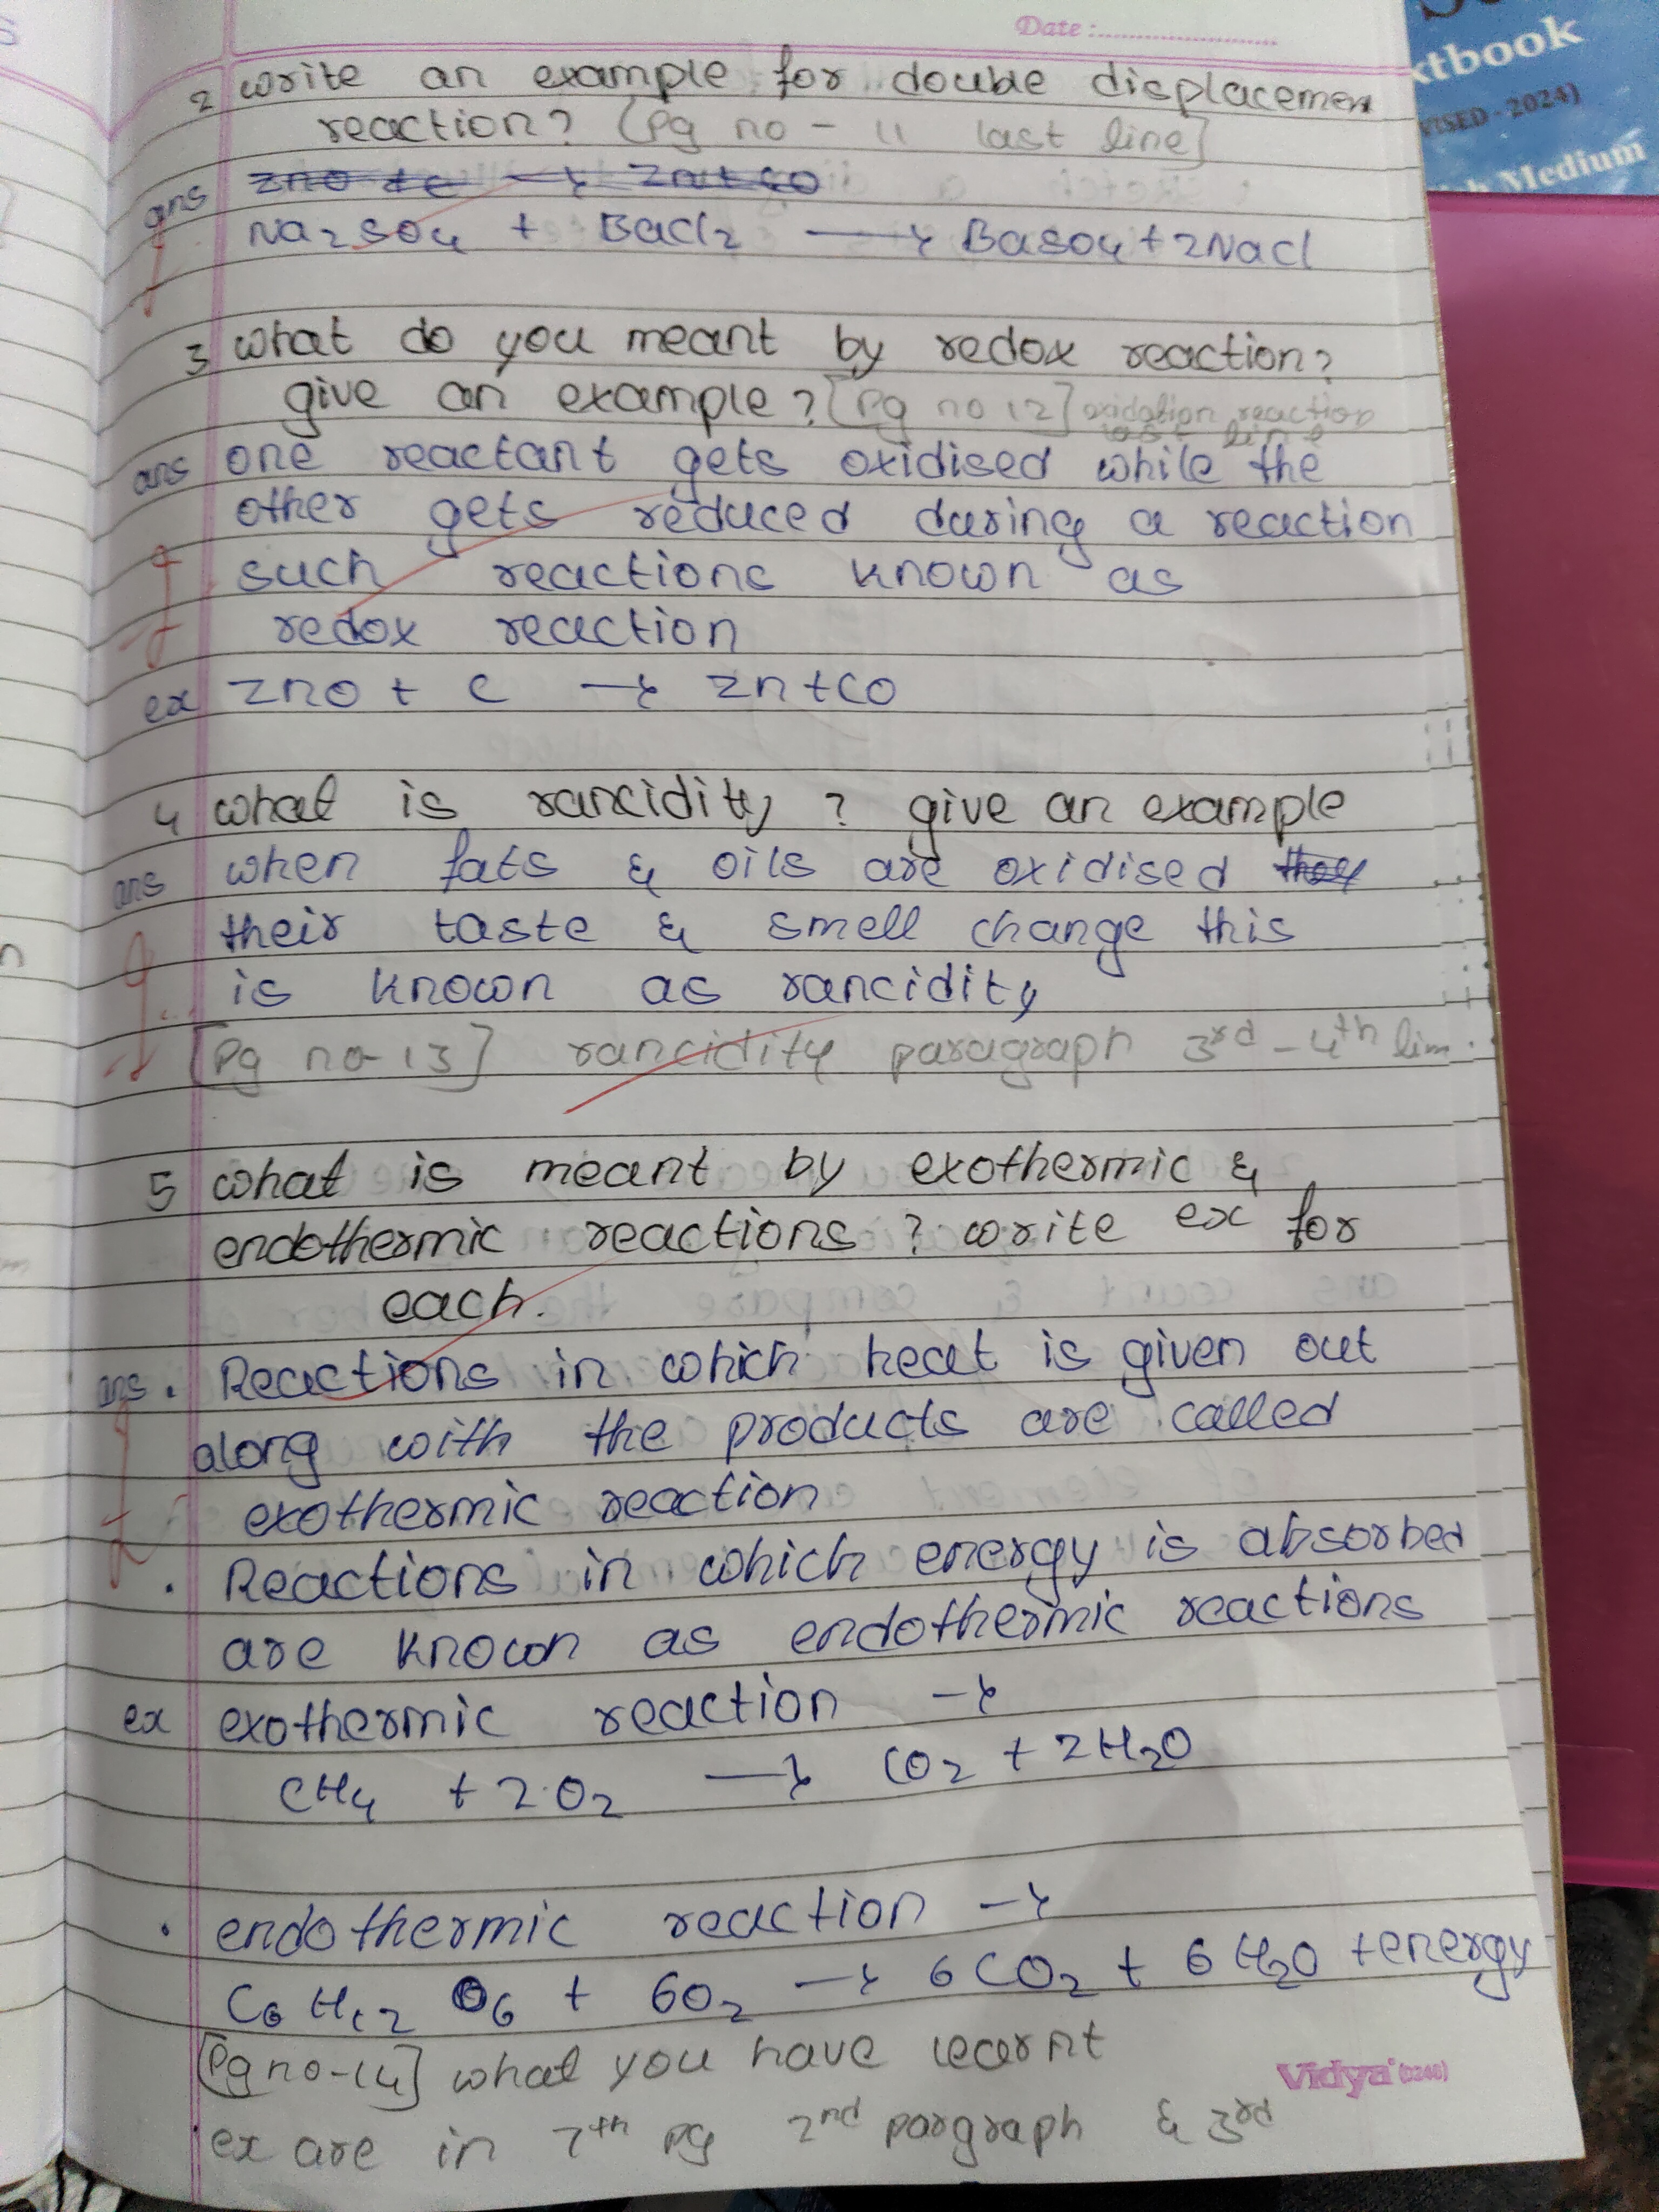 Date :
2 write an example for double displacemen
reaction? [Pg no - 11 last line]
ans ZnO + C → Zn + CO
Na2SO4 + BaCl2 → BaSO4 + 2NaCl
3 what do you meant by redox reaction?
give an example? [Pg no 12] oxidation reaction
last line
ans one reactant gets oxidised while the
other gets reduced during a reaction
such reactions known as
redox reaction
ex ZnO + C → Zn + CO
4 what is rancidity ? give an example
ans when fats & oils are oxidised they
their taste & smell change this
is known as rancidity
[Pg no - 13] rancidity paragraph 3rd - 4th lin
5 what is meant by exothermic &
endothermic reactions ? write ex for
each.
ans . Reactions in which heat is given out
along with the products are called
exothermic reaction
. Reactions in which energy is absorbed
are known as endothermic reactions
ex exothermic reaction →
CH4 + 2O2 → CO2 + 2H2O
. endothermic reaction →
C6H12O6 + 6O2 → 6CO2 + 6H2O + energy
[Pg no - 14] what you have learnt
ex are in 7th pg 2nd pargraph & 3rd
Vidya
xtbook
VISED - 2024)
h Medium